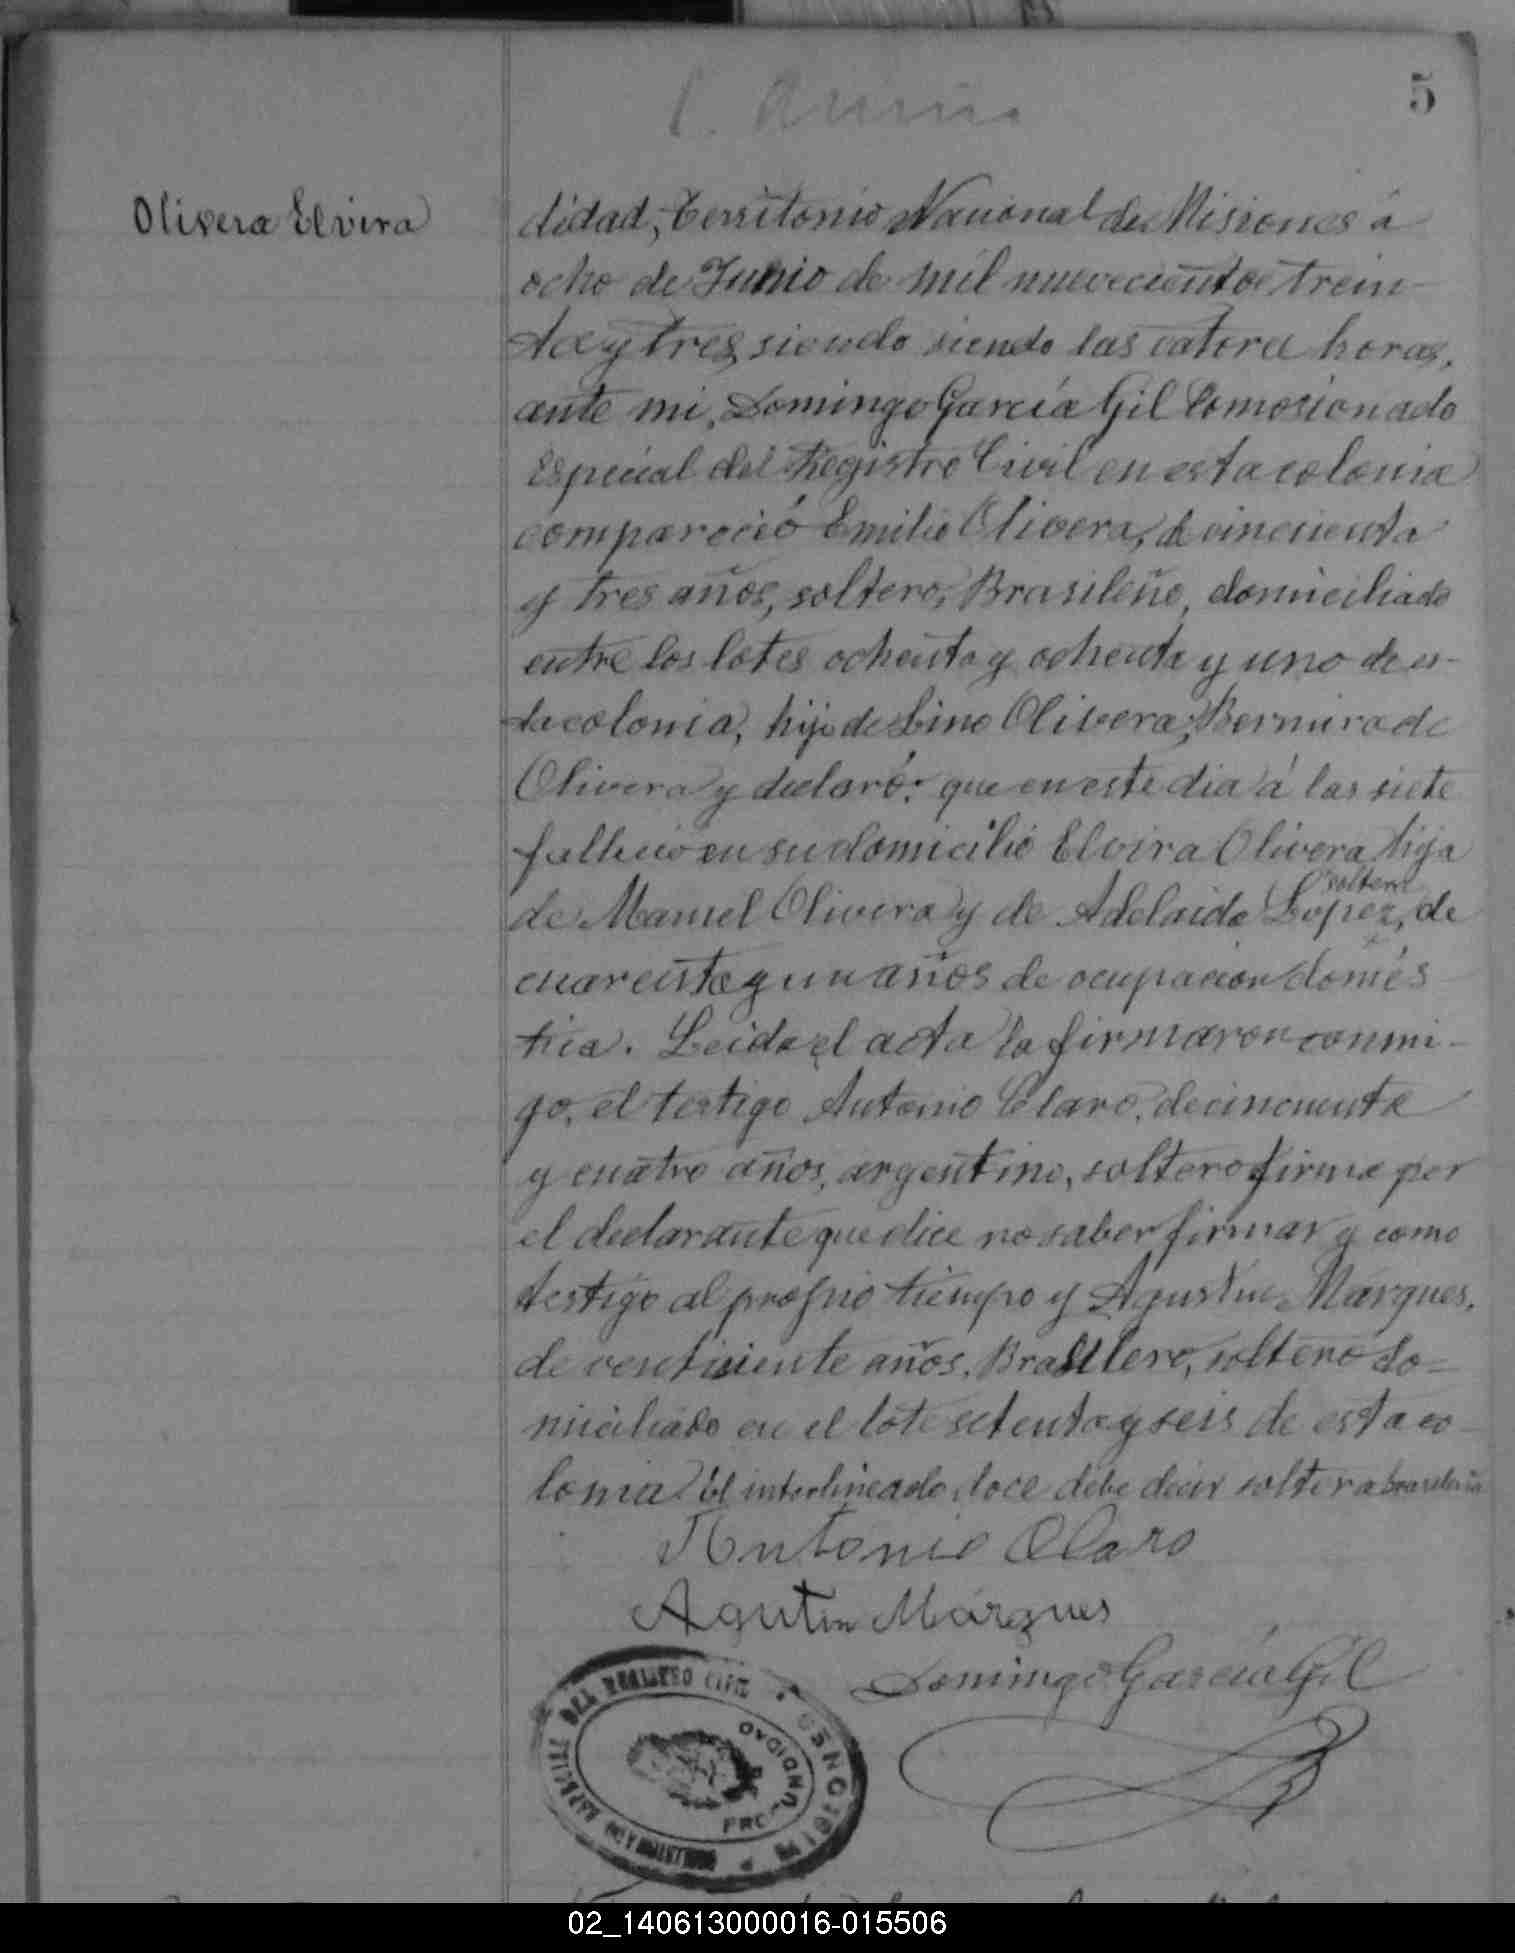 5
Olivera Elvira
didad, Territorio Nacional de Misiones á
ocho de Junio de mil nuevecientos trein-
ta y tres, siendo siendo las catorce horas,
ante mi, Domingo García Gil Comosionado
Especial del Registro Civil en esta colonia
compareció Emilio Olivera, de cincuenta
y tres años, soltero, Brasileño, domiciliado
entre los lotes ochenta y ochenta y uno de es-
ta colonia, hijo de Lino Olivera, de
Olivera y declaró: que en este dia á las siete
falleció en su domicilio Elvira Olivera hija
soltera
de Manuel Olivera y de Adelaida Lopez, de
cuarenta y un años de ocupacion domés
tica. Leida el acta la firmaron conmi-
go, el testigo Antonio Claro, de cincuenta
y cuatro años, argentino, soltero firma por
el declarante que dice no saber firmar y como
testigo al propio tiempo y Agustin Márques,
de años, Brasilero, soltero do=
miciliado en el lote setenta y seis de esta co-
lonia. El interlineado doce debe decir soltera brasileña
Antonio Claro
Agutin Márques
Domingo García Gil
DEL REGISTRO CIVIL
MISIONES
PROFUNDIDAD
02_140613000016-015506